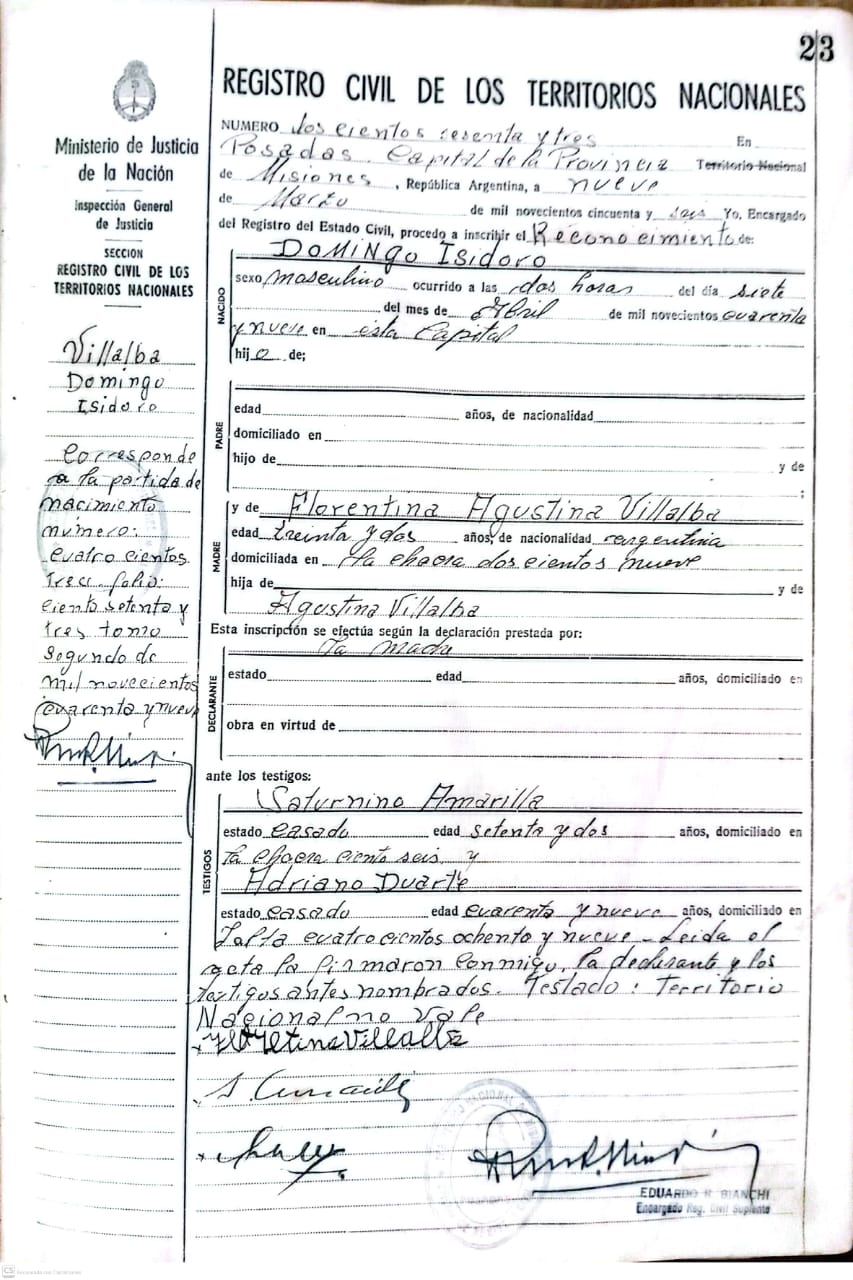 23
REGISTRO CIVIL DE LOS TERRITORIOS NACIONALES
Ministerio de Justicia
de la Nación
Inspección General
de Justicia
SECCION
REGISTRO CIVIL DE LOS
TERRITORIOS NACIONALES
Villalba
Domingo
Isidoro
Corresponde
a la partida de
nacimiento
número:
cuatro cientos
trece. folio:
ciento setenta y
tres tomo
segundo de
mil novecientos
cuarenta y nueve
NUMERO dos cientos sesenta y tres En
Posadas. Capital de la Provincia Territorio Nacional
de Misiones, República Argentina, a nueve
de Marzo de mil novecientos cincuenta y seis Yo, Encargado
del Registro del Estado Civil, procedo a inscribir el Reconocimiento de:
NACIDO
Domingo Isidoro
sexo masculino ocurrido a las dos horas del día siete
del mes de Abril de mil novecientos cuarenta
y nueve en esta Capital
hijo de;
PADRE
edad años, de nacionalidad
domiciliado en
hijo de y de
;
MADRE
y de Florentina Agustina Villalba
edad treinta y dos años, de nacionalidad argentina
domiciliada en la chacra dos cientos nueve
hija de y de
Agustina Villalba
Esta inscripción se efectúa según la declaración prestada por:
DECLARANTE
la madre
estado edad años, domiciliado en
obra en virtud de
ante los testigos:
TESTIGOS
Saturnino Amarilla
estado casado edad setenta y dos años, domiciliado en
la chacra ciento seis, y
Adriano Duarte
estado casado edad cuarenta y nueve años, domiciliado en
Salta cuatro cientos ochenta y nueve - Leida el
acta la firmaron conmigo, la declarante y los
testigos antes nombrados. Testado: Territorio
Nacional no vale
Villalba
EDUARDO R. BIANCHI
Encargado Reg. Civil Suplente
CS